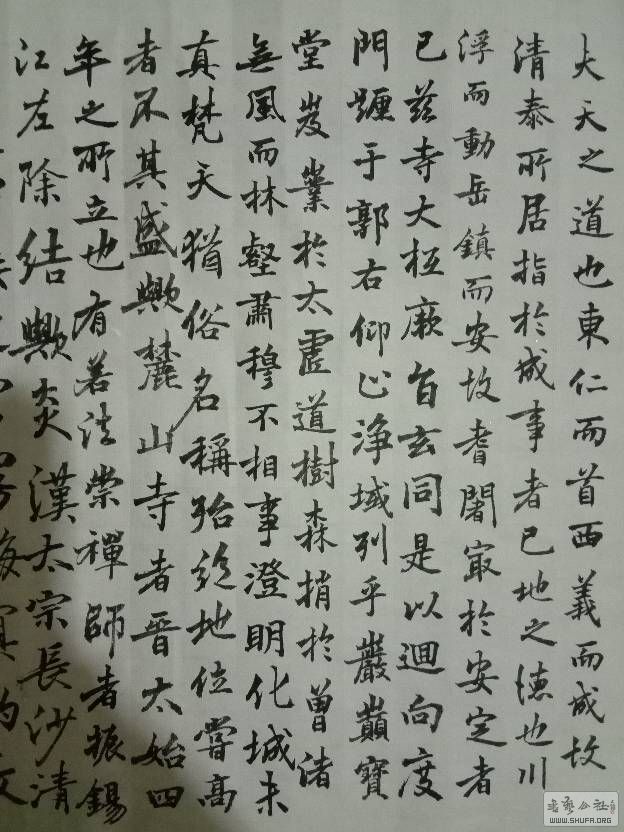 夫天之道也東仁而首西義而成故
清泰所居指於成事者已地之德也川
浮而動岳鎮而安故耆闍寂於安定者
已茲寺大抵厥旨玄同是以迴向度
門躔于郭右仰止淨域列乎巖巔寶
堂岌嶪於太虛道樹森捎於曾渚
無風而林壑肅穆不相事澄明化城未
真梵天猶俗名稱殆絕地位嘗高
者不其盛歟麓山寺者晉太始四
年之所立也有若法崇禪師者振錫
江左除結歟炎漢太宗長沙清
WWW.SHUFA.ORG